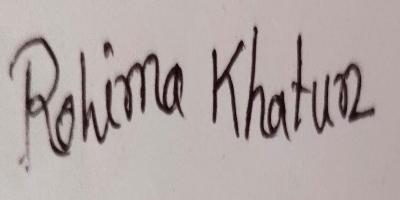 Rohima Khatun